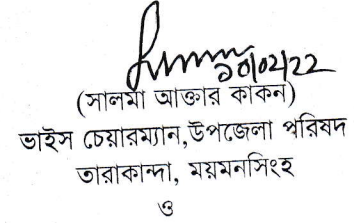 ১০/০২/22
(সালমা আক্তার কাকন)
ভাইস চেয়ারম্যান,উপজেলা পরিষদ
তারাকান্দা, ময়মনসিংহ
ও